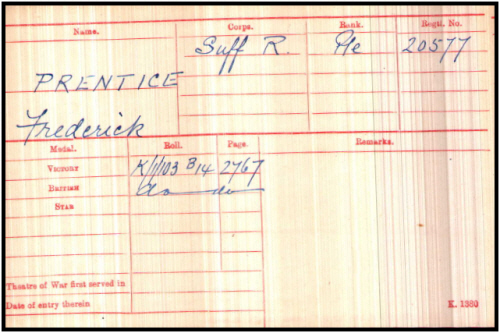 Name. Corps. Rank. Regtl. No.
Suff R. Pte 20577
PRENTICE
Frederick
Medal. Roll. Page. Remarks.
VICTORY K/1/103 B14 2767
BRITISH do do
STAR
Theatre of War first served in
Date of entry therein
K. 1380